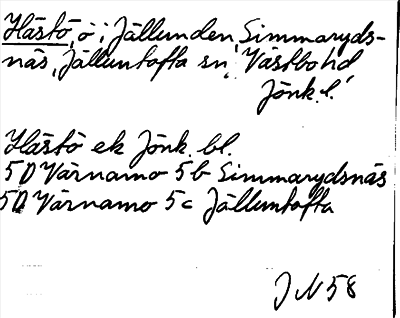 Hästö, ö i Jällunden, Simmaryds-
näs, Jälluntofta sn, Västbo hd
Jönk. l.
Hästö ek Jönk. bl.
5D Värnamo 5b Simmarydsnäs
5D Värnamo 5c Jälluntofta
J N 58